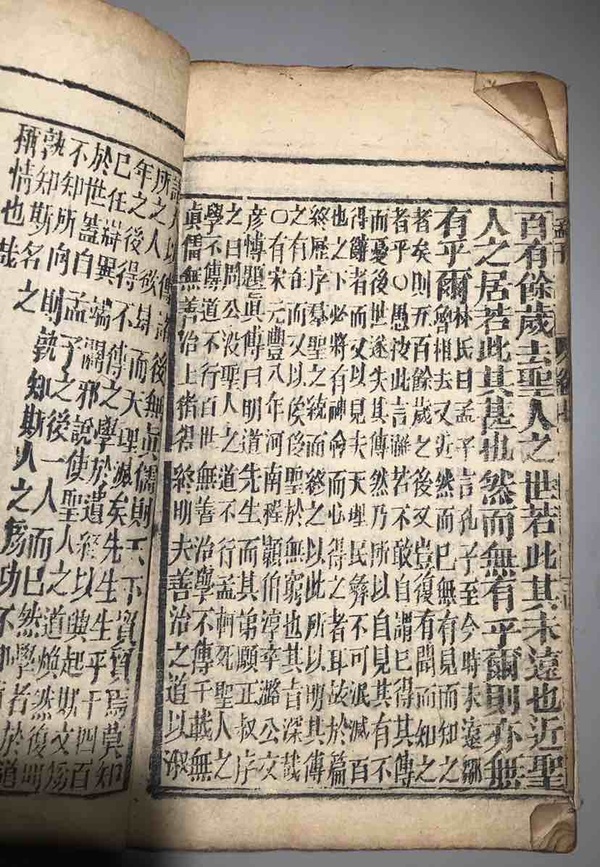 百有餘歲去聖人之世若此其未遠也近聖
人之居若此其甚也然而無有乎爾則亦無
有乎爾
林氏曰孟子言孔子至今時未遠鄒
魯相去又近然而已無有見而知之
者矣則五百餘歲之後又豈復有聞而知之
者乎○愚按此言雖若不敢自謂已得其傳
而憂後世遂失其傳然乃所以自見其有不
得辭者而又以見夫天理民彝不可泯滅百
世之下必將有神會而心得之者耳故於篇
終歷序羣聖之統而終之以此所以明其傳
之有在而又以俟後聖於無窮也其旨深哉
○有宋元豐八年河南程顥伯淳卒潞公文
彥博題其傳曰明道先生而其弟頤正叔序
之曰周公沒聖人之道不行孟軻死聖人之
學不傳道不行百世無善治學不傳千載無
眞儒無善治士猶得以明夫善治之道以淑
諸人以傳諸後無眞儒則天下貿貿焉莫知
所之人欲肆而天理滅矣先生生乎千四百
年之後得不傳之學於遺經以興起斯文爲
已任辯異端闢邪說使聖人之道煥然復明
於世蓋自孟子之後一人而已然學者於道
不知所向則孰知斯人之爲功不
孰知斯名之
稱情也哉